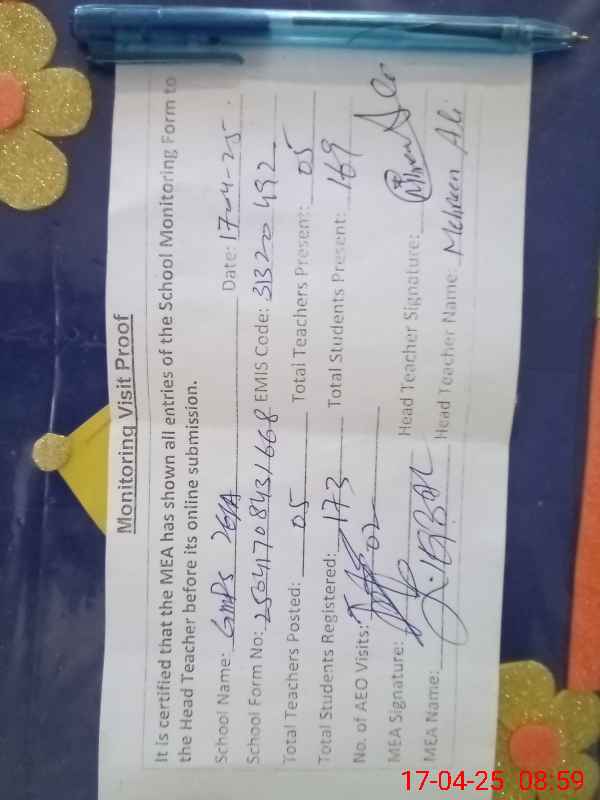 Monitoring Visit Proof
It is certified that the MEA has shown all entries of the School Monitoring Form to
the Head Teacher before its online submission.
School Name: GMPS 26/A Date: 17-04-25
School Form No: 25041708431668 EMIS Code: 31320492
Total Teachers Posted: 05 Total Teachers Present: 05
Total Students Registered: 173 Total Students Present: 169
No. of AEO Visits: 02
MEA Signature: Head Teacher Signature:
MEA Name: IQBAL Head Teacher Name: Mehreen Ali
17-04-25 08:59